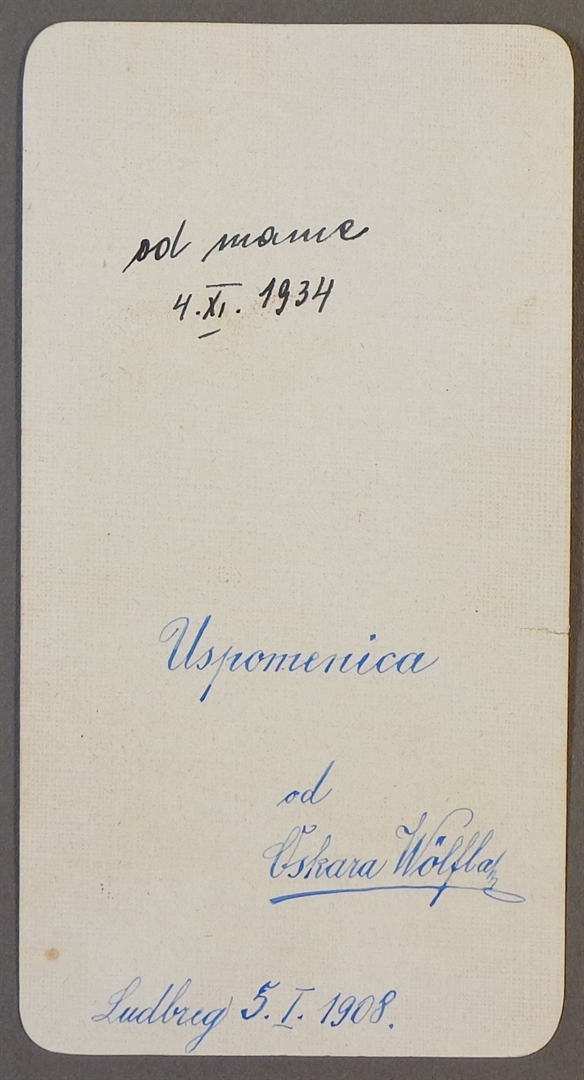 od mame
4. XI. 1934
Uspomenica
od
Oskara Wölfla
Ludbreg 5. I. 1908.